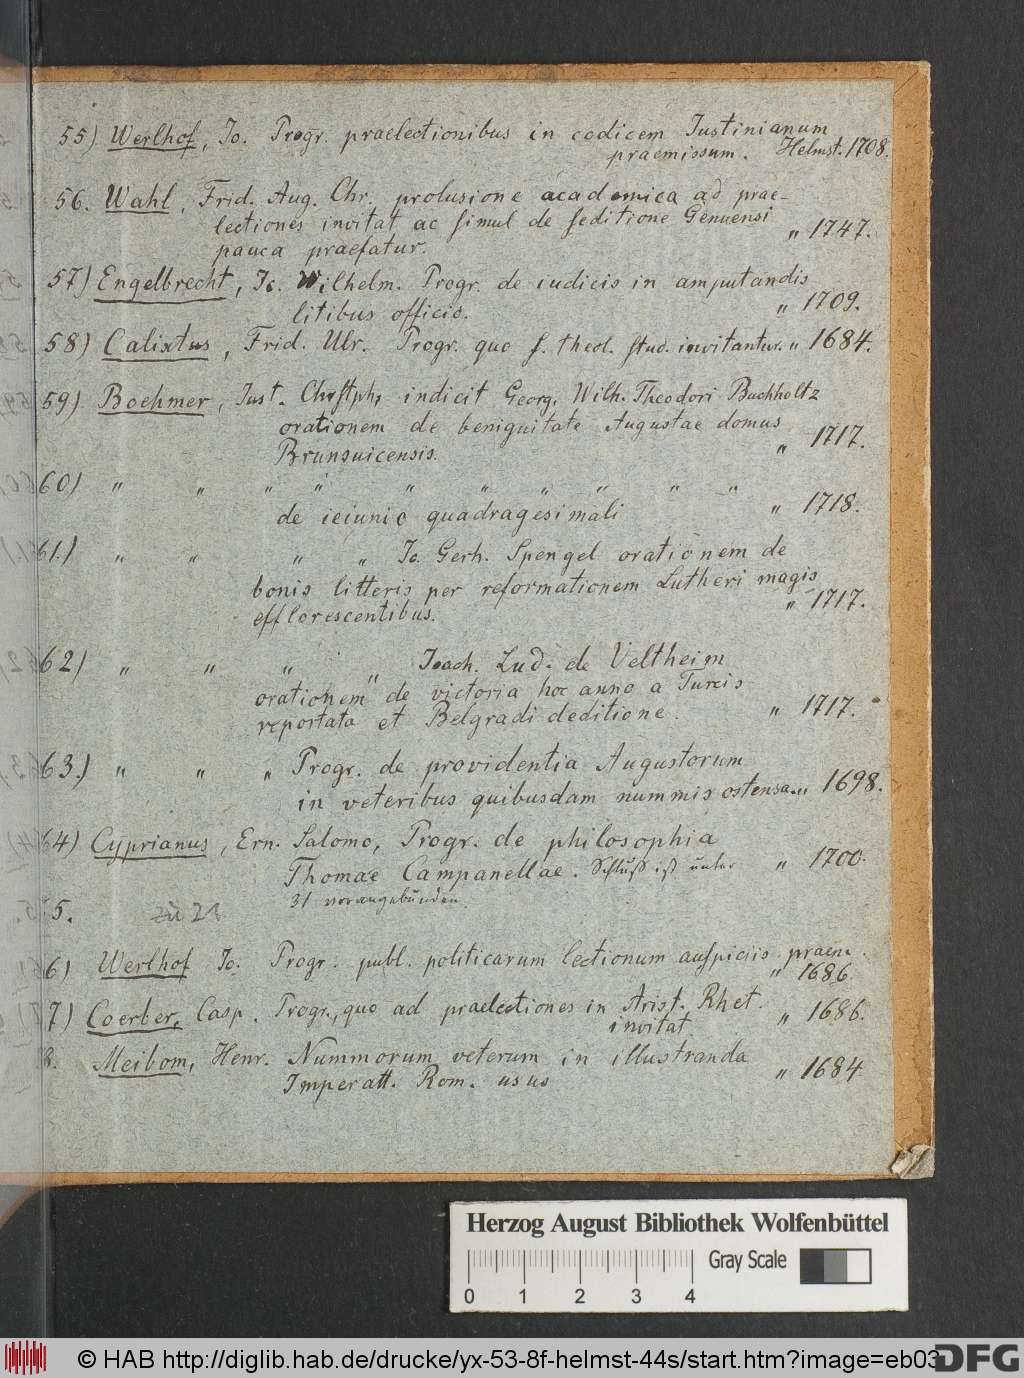 55) Werlhof, Io. Progr. praelectionibus in codicem Iustinianum
praemissum. Helmst. 1708.
56. Wahl, Frid. Aug. Chr. prolusione academica ad prae-
lectiones invitat ac simul de seditione Genuensi
pauca praefatur. " 1747.
57) Engelbrecht, Io. Wilhelm. Progr. de iudicis in amputandis
litibus officio. " 1709.
58) Calixtus, Frid. Ulr. Progr. quo s. theol. stud. invitantur. " 1684.
59) Boehmer, Iust. Chrstph, indicit Georg. Wilh. Theodori Buchholtz
orationem de benignitate Augustae domus
Brunsuicensis. " 1717.
60) " " " " " " " " " "
de ieiunio quadragesimali " 1718.
61.) " " " " Io. Gerh. Spengel orationem de
bonis litteris per reformationem Lutheri magis
efflorescentibus. " 1717.
62) " " " " Ioach. Lud. de Veltheim
orationem de victoria hoc anno a Turcis
reportata et Belgradi deditione. " 1717.
63.) " " " Progr. de providentia Augustorum
in veteribus quibusdam nummis ostensa. " 1698.
64) Cyprianus, Ern. Salomo, Progr. de philosophia
Thomae Campanellae. Schluß ist unter " 1700.
31 vorangebunden.
5. zu 23
6) Werlhof Io. Progr. publ. politicarum lectionum auspiciis praem.
" 1686.
7) Coerber, Casp. Progr., quo ad praelectiones in Arist. Rhet.
invitat " 1686.
8. Meibom, Henr. Nummorum veterum in illustranda
Imperatt. Rom. usus " 1684
Herzog August Bibliothek Wolfenbüttel
Gray Scale
0 1 2 3 4
© HAB http://diglib.hab.de/drucke/yx-53-8f-helmst-44s/start.htm?image=eb03
DFG